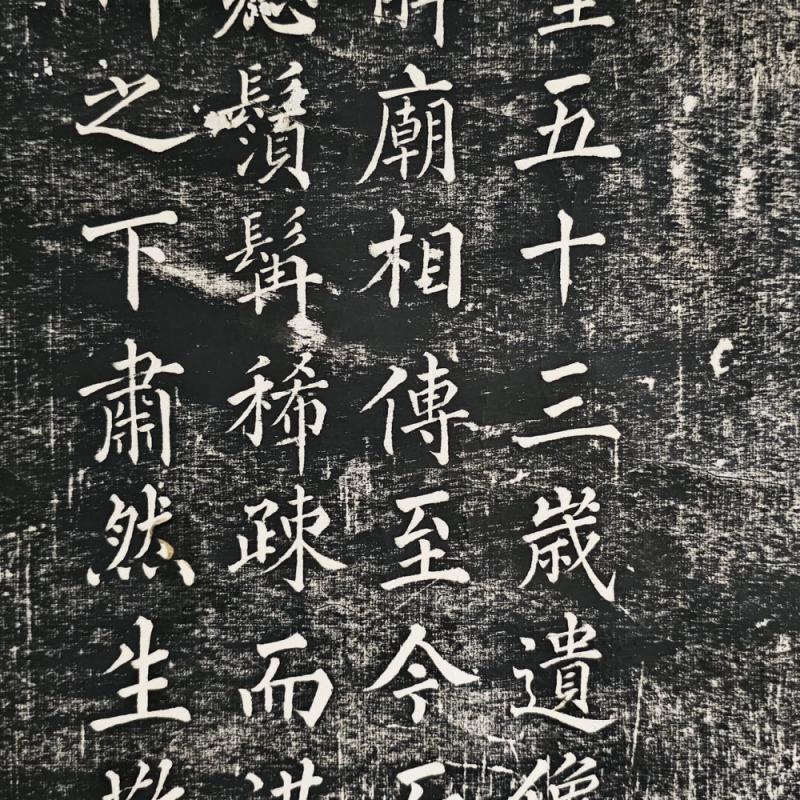 五十三歲遺像
廟相傳至今
鬚髯稀疎而
之下肅然生